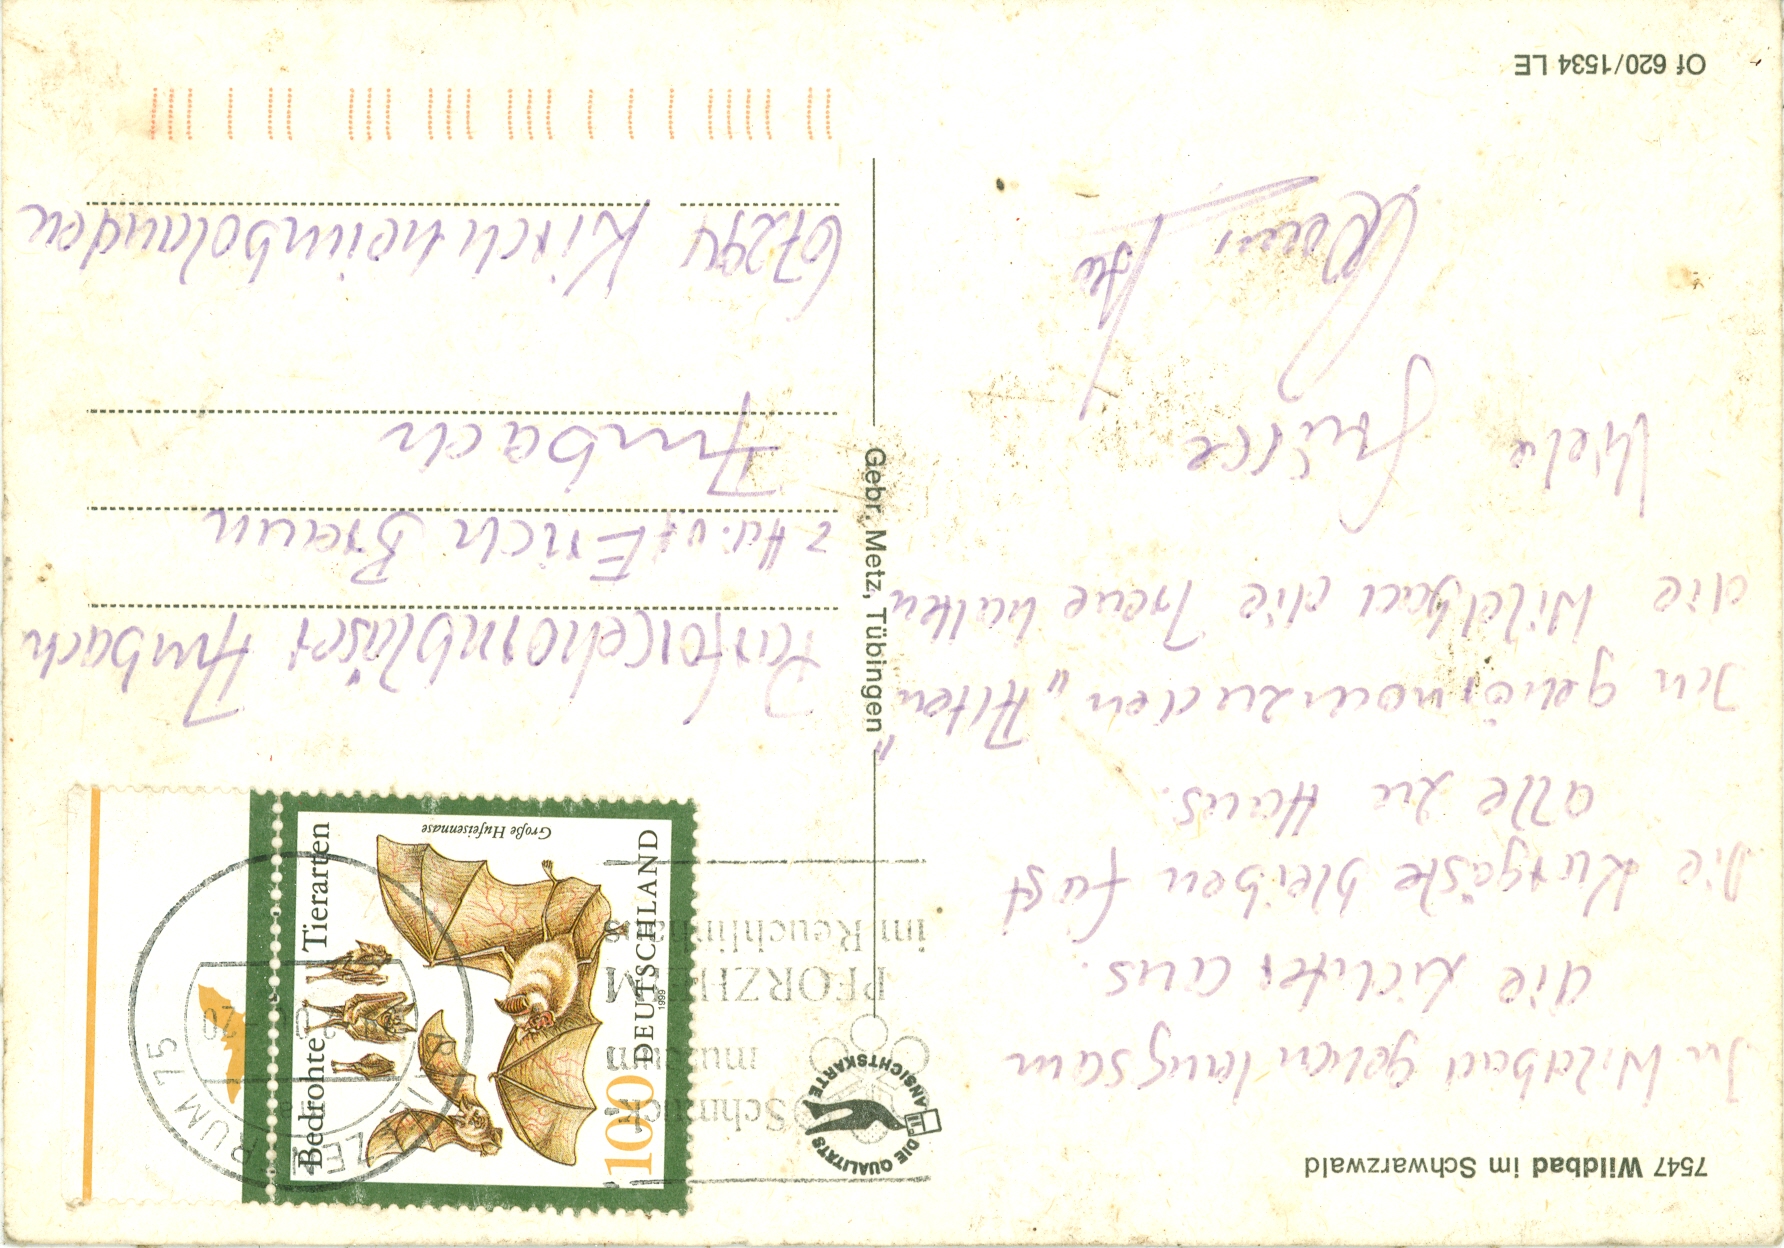 7547 Wildbad im Schwarzwald
In Wildbad gehen langsam
die Lichter aus.
Die Kurgäste bleiben fast
alle zu Haus.
die Wildbad die Treue halten
Viele Grüsse
Of 620/1534 LE
DIE QUALITÄTS ANSICHTSKARTE
Gebr. Metz, Tübingen
Schmuck
museum
PFORZHEIM
im Reuchlinhaus
100
DEUTSCHLAND
1999
Große Hufeisennase
Bedrohte Tierarten
Parforcehornbläser Ambach
z.Hd. v. Erich Braun
Ambach
67294 Kirchheimbolanden